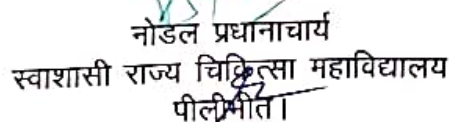 नोडल प्रधानाचार्य
स्वाशासी राज्य चिकित्सा महाविद्यालय
पीलीभीत।